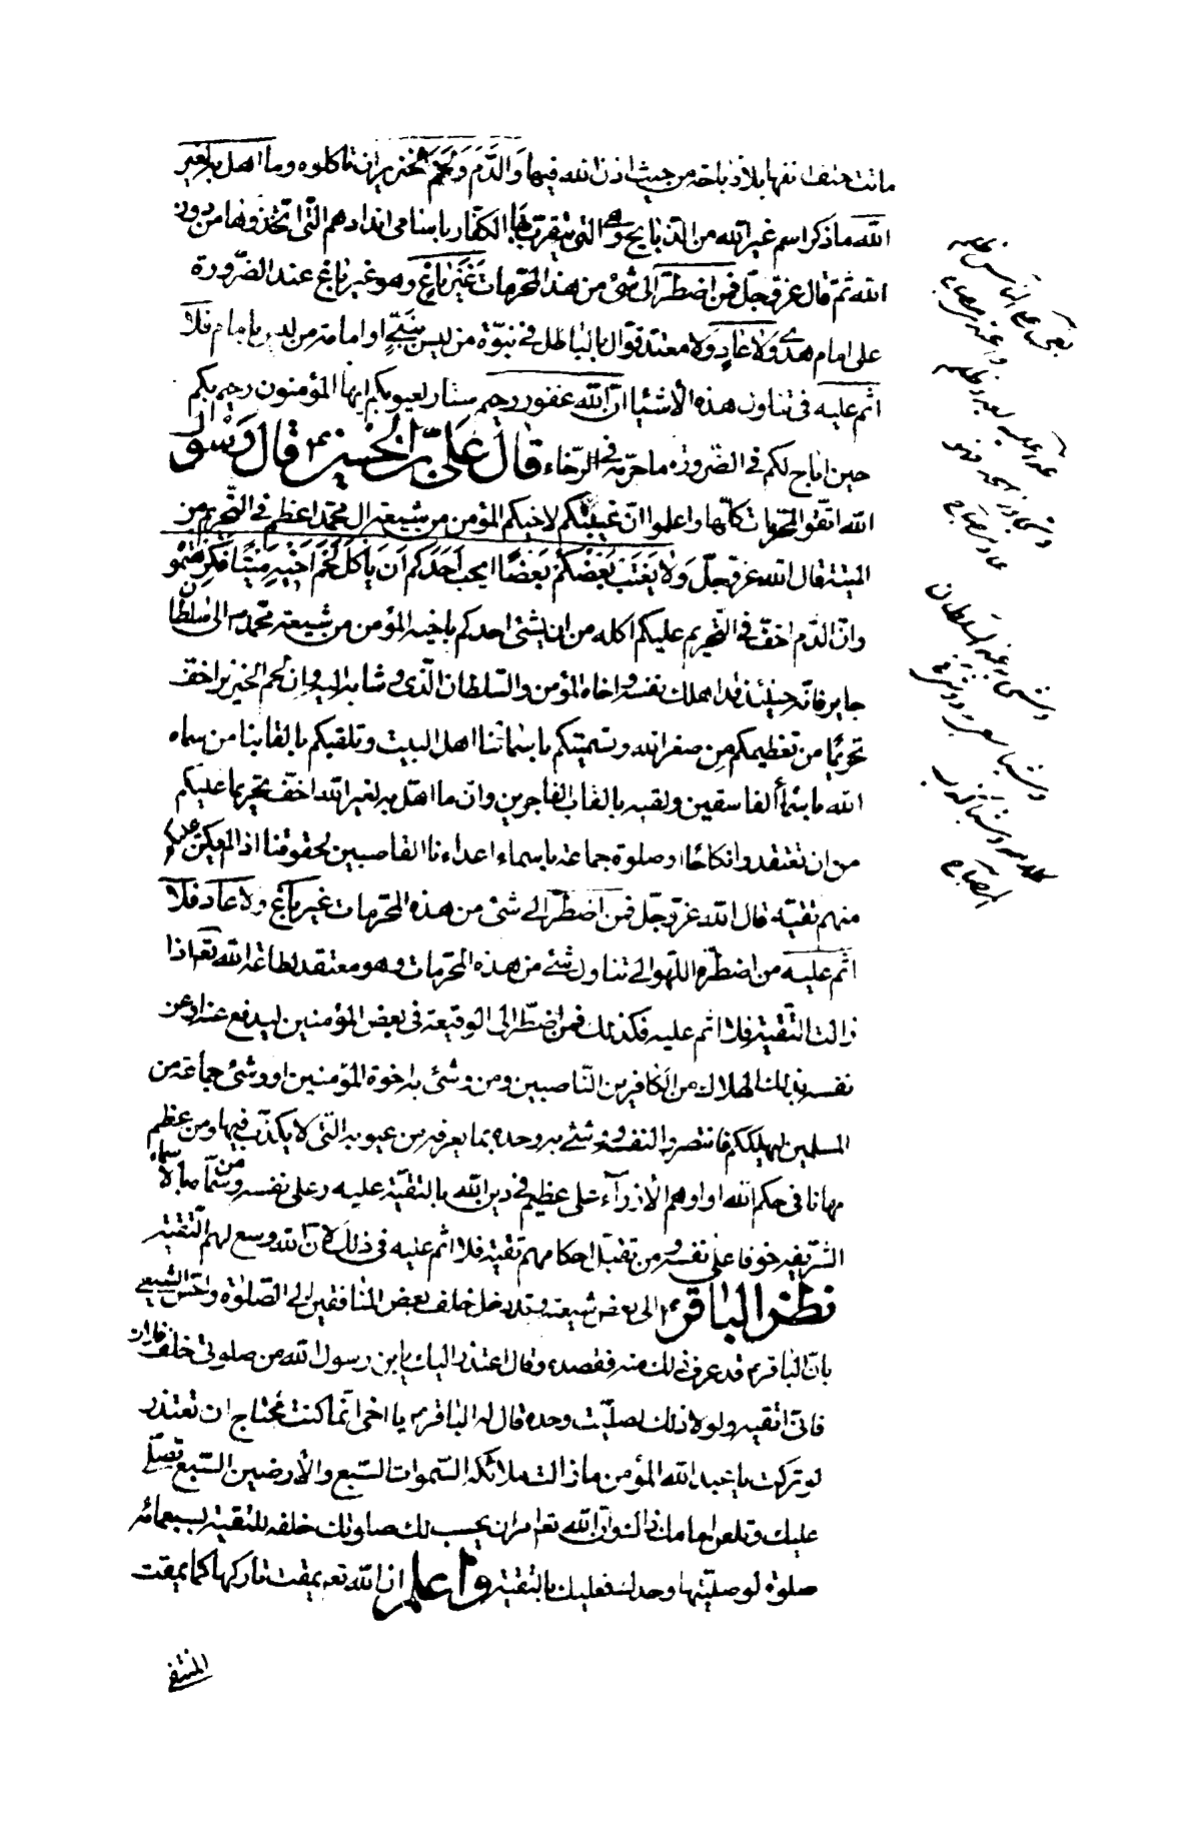 ماتت حتف انفها بلا ذباحة من حيث اذن الله فيها وَالدَّمَ وَلَحْمَ الخنزیر ان تاكلوه وما اهل به لغير
الله ما ذكر اسم غير الله من الذبايح وهى التى يتقرب بها الكفار باسامى اندادهم الّتى اتخذوها من دون
الله ثمّ قال عزّ وجلّ فمن اضطرّ الى شئ من هذه المحرمات غَيْرَ بَاغٍ وهو غير باغ عند الضّرورة
على امام هدى وَلَا عَادٍ ولا معتد قوّال بالباطل فى نبوّة من ليس بنبىّ او امامة من ليس بامام فلا
اثم عليه فى تناول هذه الأشيا انّ الله غفور رحيم ستار لعيوبكم ايها المؤمنون رحيم بكم
حين اباح لكم فى الضّرورة ما حرّمه فى الرّخاء قال علىّ بن الحسين ع قال رسول
الله اتّقوا المحرّمات كلّها واعلموا انّ غيبتكم لاخيكم المؤمن من شيعة ال محمّد اعظم فى التّحريم من
الميتة قال الله عزّ وجلّ وَلَا يَغْتَبْ بَعْضُكُمْ بَعْضًا ايحب اَحَدُكُم اَن يَأكُلَ لَحْمَ اَخِيهِ مَيْتًا فَكَرِهْتُمُوهُ
وانّ الدّم اخفّ فى التّحريم عليكم اكله من ان يشى احدكم باخيه المؤمن من شيعة محمد ص الى سلطان
جاير فانّه حينئذ قد اهلك نفسه واخاه المؤمن والسّلطان الّذى وشا به اليه وانّ لحم الخنزير اخف
تحريمًا من تعظيمكم من صغر الله وتسميتكم باسمائنا اهل البيت وتلقبكم بالقابنا من سماه
الله باسماء الفاسقين ولقبه بالقاب الفاجرين وانّ ما اهلّ به لغير الله اخفّ تحريما عليكم
من ان تعتقدوا نكاحًا او صلوة جماعة باسماء اعداءنا الغاصبين لحقوقنا اذا لم يكن عليكم
منهم تقيّة قال الله عزّ وجلّ فمن اضطرّ الى شئ من هذه المحرمات غير باغ ولا عاد فلا
اثم عليه من اضطرّه اللّهو الى تناول شئ من هذه المحرمات وهو معتقد لطاعة الله تعـ اذا
زالت التّقيّة فلا اثم عليه فكذلك فمن اضطرّ الى الوقيعة فى بعض المؤمنين ليدفع عنه او عن
نفسه بذلك الهلاك من الكافرين النّاصبين ومن وشئ به اخوة المؤمنين او وشئ جماعة من
المسلمين ليهلكهم فانتصر لنفسه ووشئ به وحده بما يعرفه من عيوبه الّتى لا يكذب فيها ومن عظم
مهانا فى حكم الله او اوهم الأزراء على عظيم فى دين الله بالتقيّة عليه وعلى نفسه ومن سمّاهم بالاسماء
الشّريفه خوفا على نفسه ومن تقبّل احكامهم تقيّة فلا اثم عليه فى ذلك لانّ الله وسع لهم التّقية
نظر الباقر ع الى بعض شيعته وقد دخل خلف بعض المنافقين الى الصّلوة واحسّ الشيعى
بانّ الباقر ع قد عرف ذلك منه فقصده وقال اعتذر اليك يابن رسول الله من صلوتى خلف فلان
فانّى اتّقيه ولو لا ذلك لصلّيت وحده قال له الباقر ع يا اخى انّما كنت تحتاج ان تعتذر
لو تركت يا عبد الله المؤمن ما زالت ملائكة السّموات السّبع والأرضين السّبع تصلّى
عليك وتلعن امامك ذاك وانّ الله تعـ امر ان يحسب لك صلوتك خلفه للتقية بسبعمائة
صلوة لو صلّيتها وحدك فعليك بالتقية واعلم ان الله تعـ يمقت تاركها كما يمقت
المتّقى